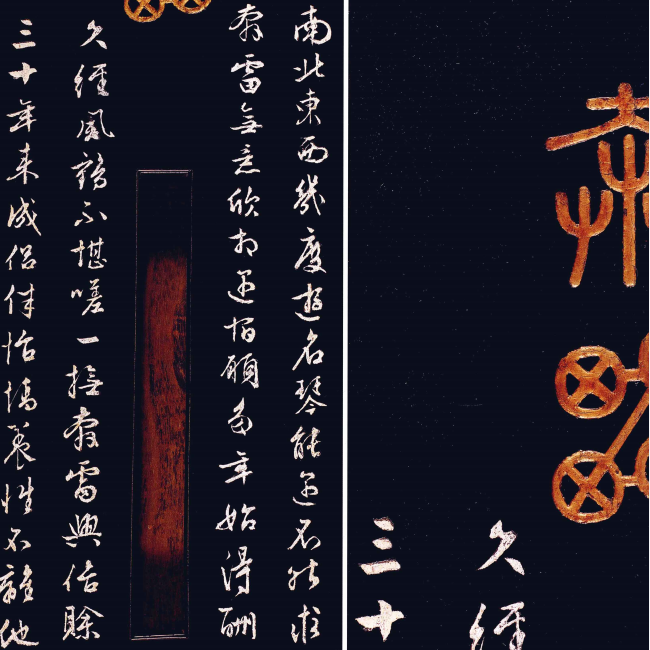 南北東西幾度遊名琴能遇不能求
春雷無意欣相遇宿願多年始得酬
久經風鶴不堪嗟一撫春雷興倍賒
三十年来成侶伴怡情養性不離他
久經
三十